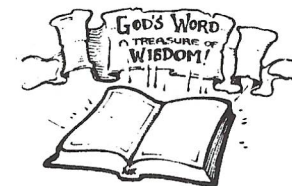 GOD'S WORD
A TREASURE OF
WISDOM!